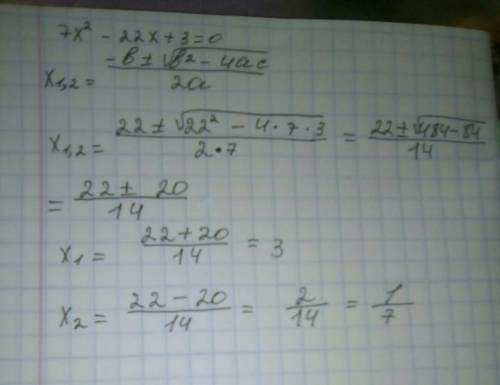 7x² - 22x + 3 = 0
x₁,₂ = (-в ± √(в² - 4ac)) / 2a
x₁,₂ = (22 ± √(22² - 4 · 7 · 3)) / (2 · 7) = (22 ± √(484 - 84)) / 14
= (22 ± 20) / 14
x₁ = (22 + 20) / 14 = 3
x₂ = (22 - 20) / 14 = 2/14 = 1/7